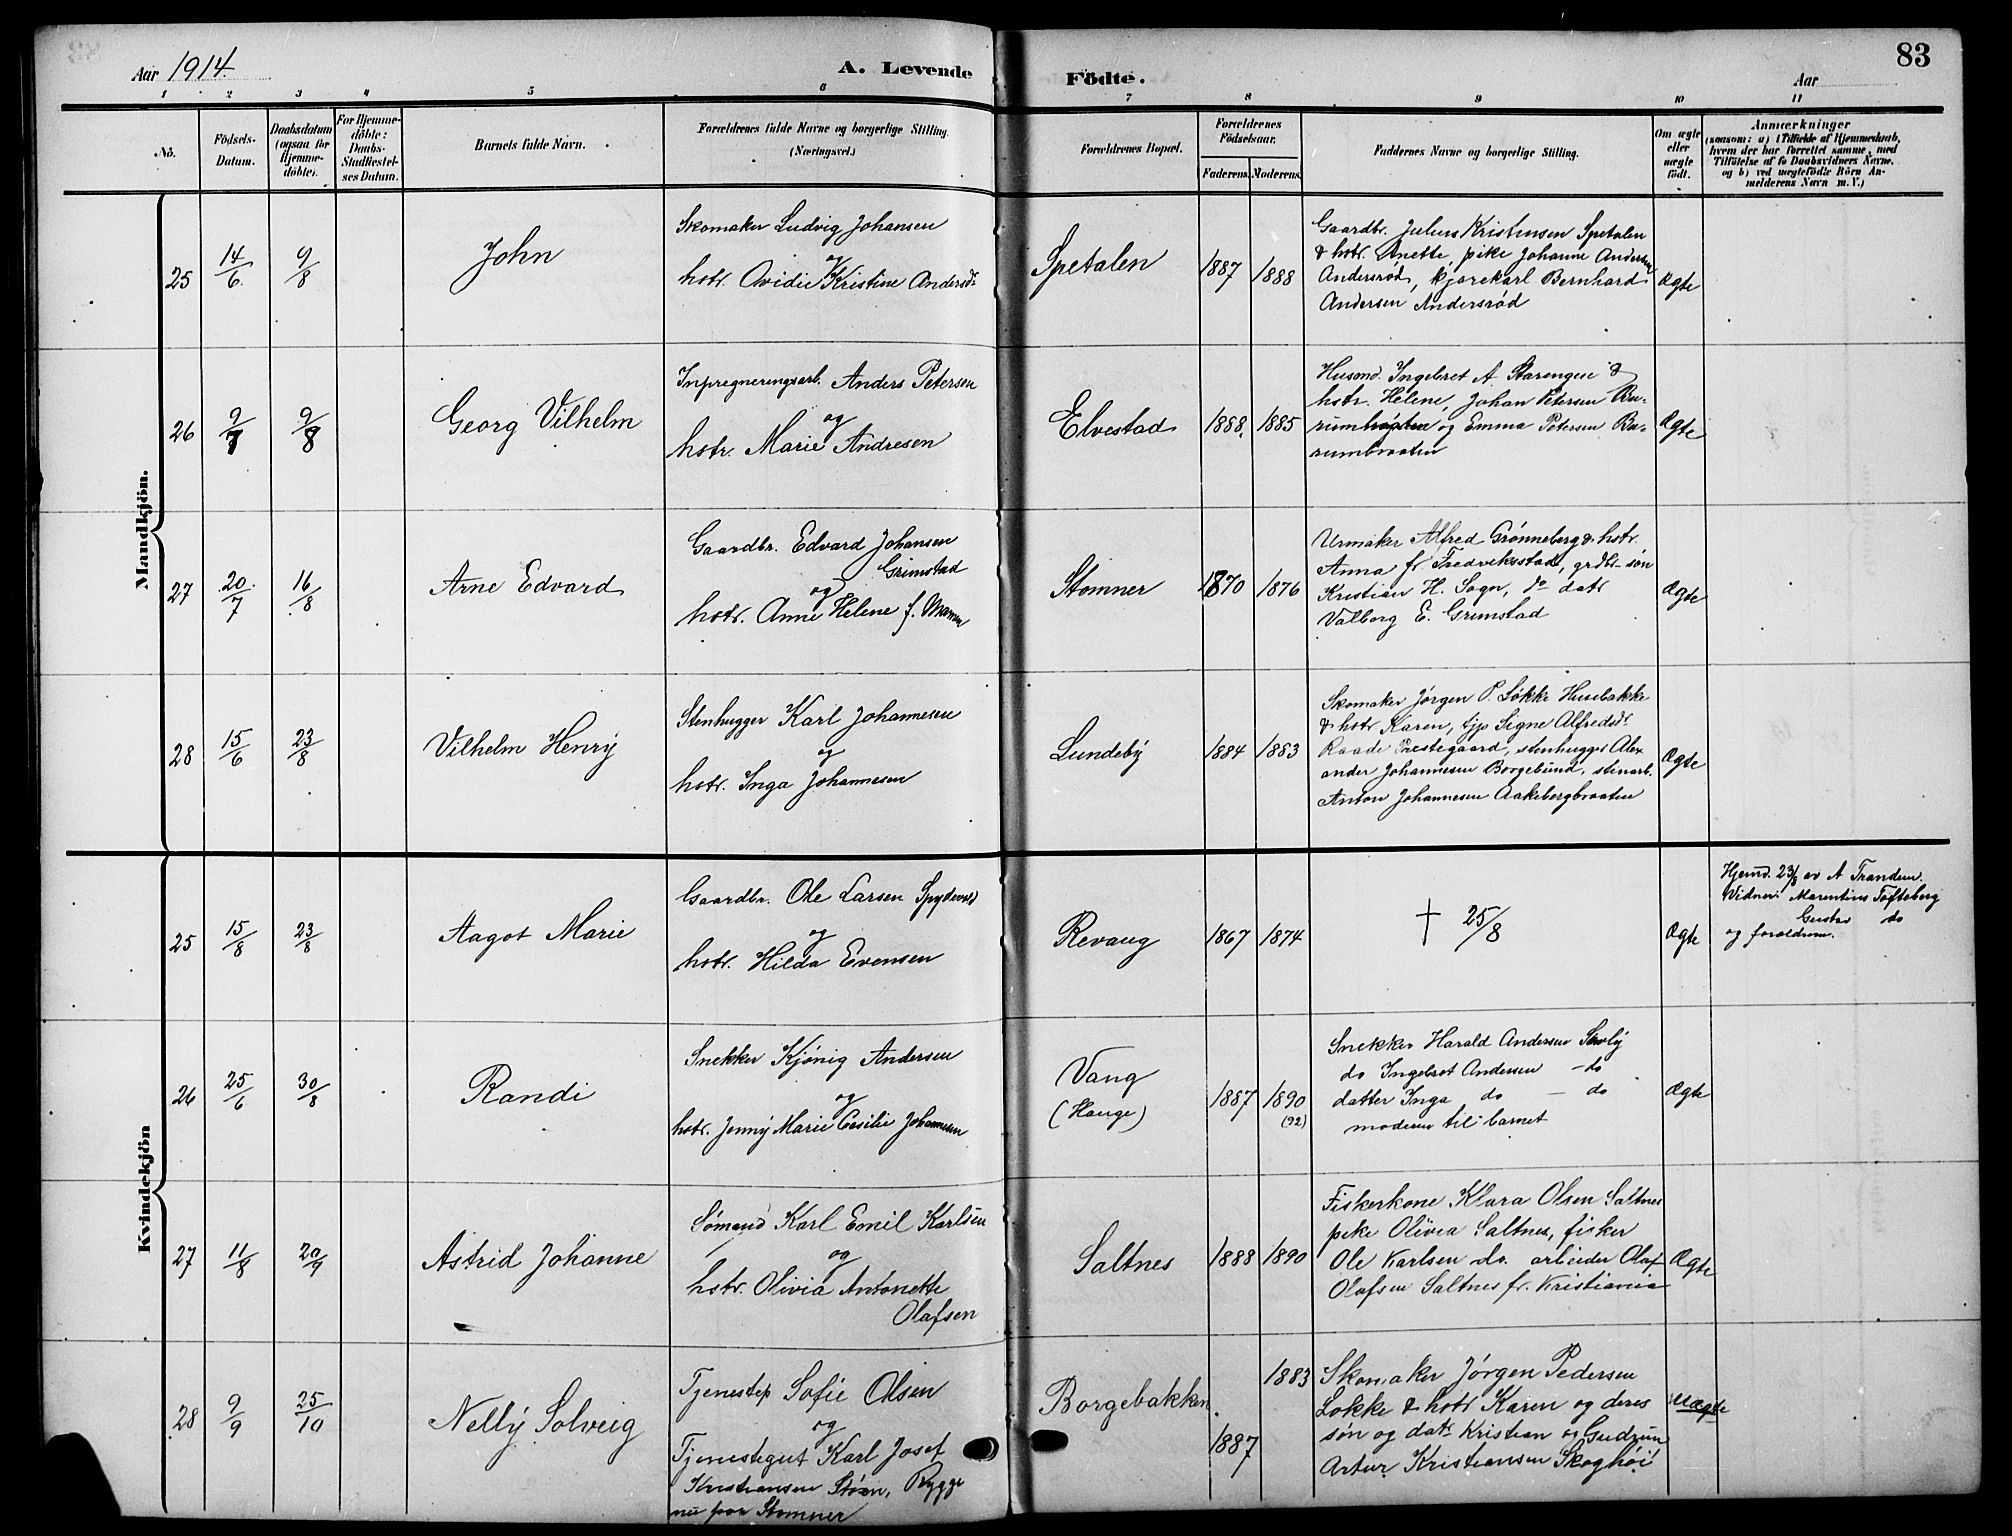 Aar 1914.
A. Levende Födte.
Aar
83
1 2 3 4 5 6 7 8 9 10 11
No.
Födsels-Datum.
Daabsdatum (ogsaa for Hjemme-döbte).
For Hjemme-döbte: Daabs-Stadfæstel-ses Datum.
Barnets fulde Navn.
Forældrenes fulde Navne og borgerlige Stilling.
(Næringsvei.)
Forældrenes Bopæl.
Forældrenes Födselsaar.
Faderens. Moderens.
Faddernes Navne og borgerlige Stilling.
Om ægte eller uægte födt.
Anmærkninger
(saasom: a) i Tilfælde af Hjemmedaab,
hvem der har forrettet samme, med
Tilföielse af to Daabsvidners Navne,
og b) ved uægtefödte Börn An-
melderens Navn m. V.)
Mandkjön.
25 14/6 9/8 John
Skomaker Ludvig Johansen
og
hstr. Ovidie Kristine Andersdr
Spetalen 1887 1888
Gaardbr. Julius Kristensen Spetalen
& hstr. Anette, pike Johanne Andersen
Andersrød, kjørekarl Bernhard
Andersen Andersrød
Ægte
26 9/7 9/8 Georg Vilhelm
Inpregneringsarb. Anders Petersen
og
hstr. Marie Andresen
Elvestad 1888. 1885
Husmd. Ingebret A. Starengen &
hstr. Helene, Johan Petersen Bu-
og Emma Petersen Bu-
rumbraaten
Ægte
27 20/7 16/8 Arne Edvard
Gaardbr. Edvard Johansen
Grimstad
og
hstr. Anne Helene f. Mamen
Stomner 1870 1876
Urmaker Alfred Grønneberg & hstr.
Anna fr. Fredriksstad, grdbr. søn
Kristian H. Sogn, do datr
Valborg E. Grimstad
Ægte
28 15/6 23/8 Vilhelm Henry
Stenhugger Karl Johannesen
og
hstr. Inga Johannesen
Lundeby 1884 1883
Skomaker Jørgen P. Løkke Husebakke
& hstr Karen, tjp Signe Alfredsdr
Raade Prestegaard, stenhugger Alex
ander Johannesen Borgebund, stenarb.
Anton Johannesen Aakebergbraaten
Ægte
Kvindekjön
25 15/8 23/8 Aagot Marie
Gaardbr. Ole Larsen Spydevold
og
hstr. Hilda Evensen
Revaug 1867 1874
† 25/8
Ægte
Hjemd. 23/8 av A Trandem.
Vidner: Marentius Tofteberg
Gustav do
og forældrene.
26 25/6 30/8 Randi
Snekker Kjønig Andersen
og
hstr. Jenny Marie Cesilie Johannesen
Vang
(Hauge)
1887 1890
(92)
Snekker Harald Andersen
do Ingebret Andersen – do
datter Inga do — do
moderen til barnet
Ægte
27 11/8 20/9 Astrid Johanne
Sømand Karl Emil Karlsen
og
hstr. Olivia Antonette
Olafsen
Saltnes 1888 1890
Fiskerkone Klara Olsen Saltnes
pike Olivia Saltnes, fisker
Ole Karlsen do. arbeider Olaf
Olafsen Saltnes fr. Kristiania
Ægte
28 9/9 25/10 Nelly Solveig
Tjenestep Sofie Olsen
og
Tjenestegut Karl Josef
Kristiansen Støen, Rygge
nu paa Stomner
Borgebakken 1887 1883
Skomaker Jørgen Pedersen
Løkke & hstr Karen og deres
søn og datr Kristian og Gudrun
Artur Kristiansen Skoghøi
Uægte